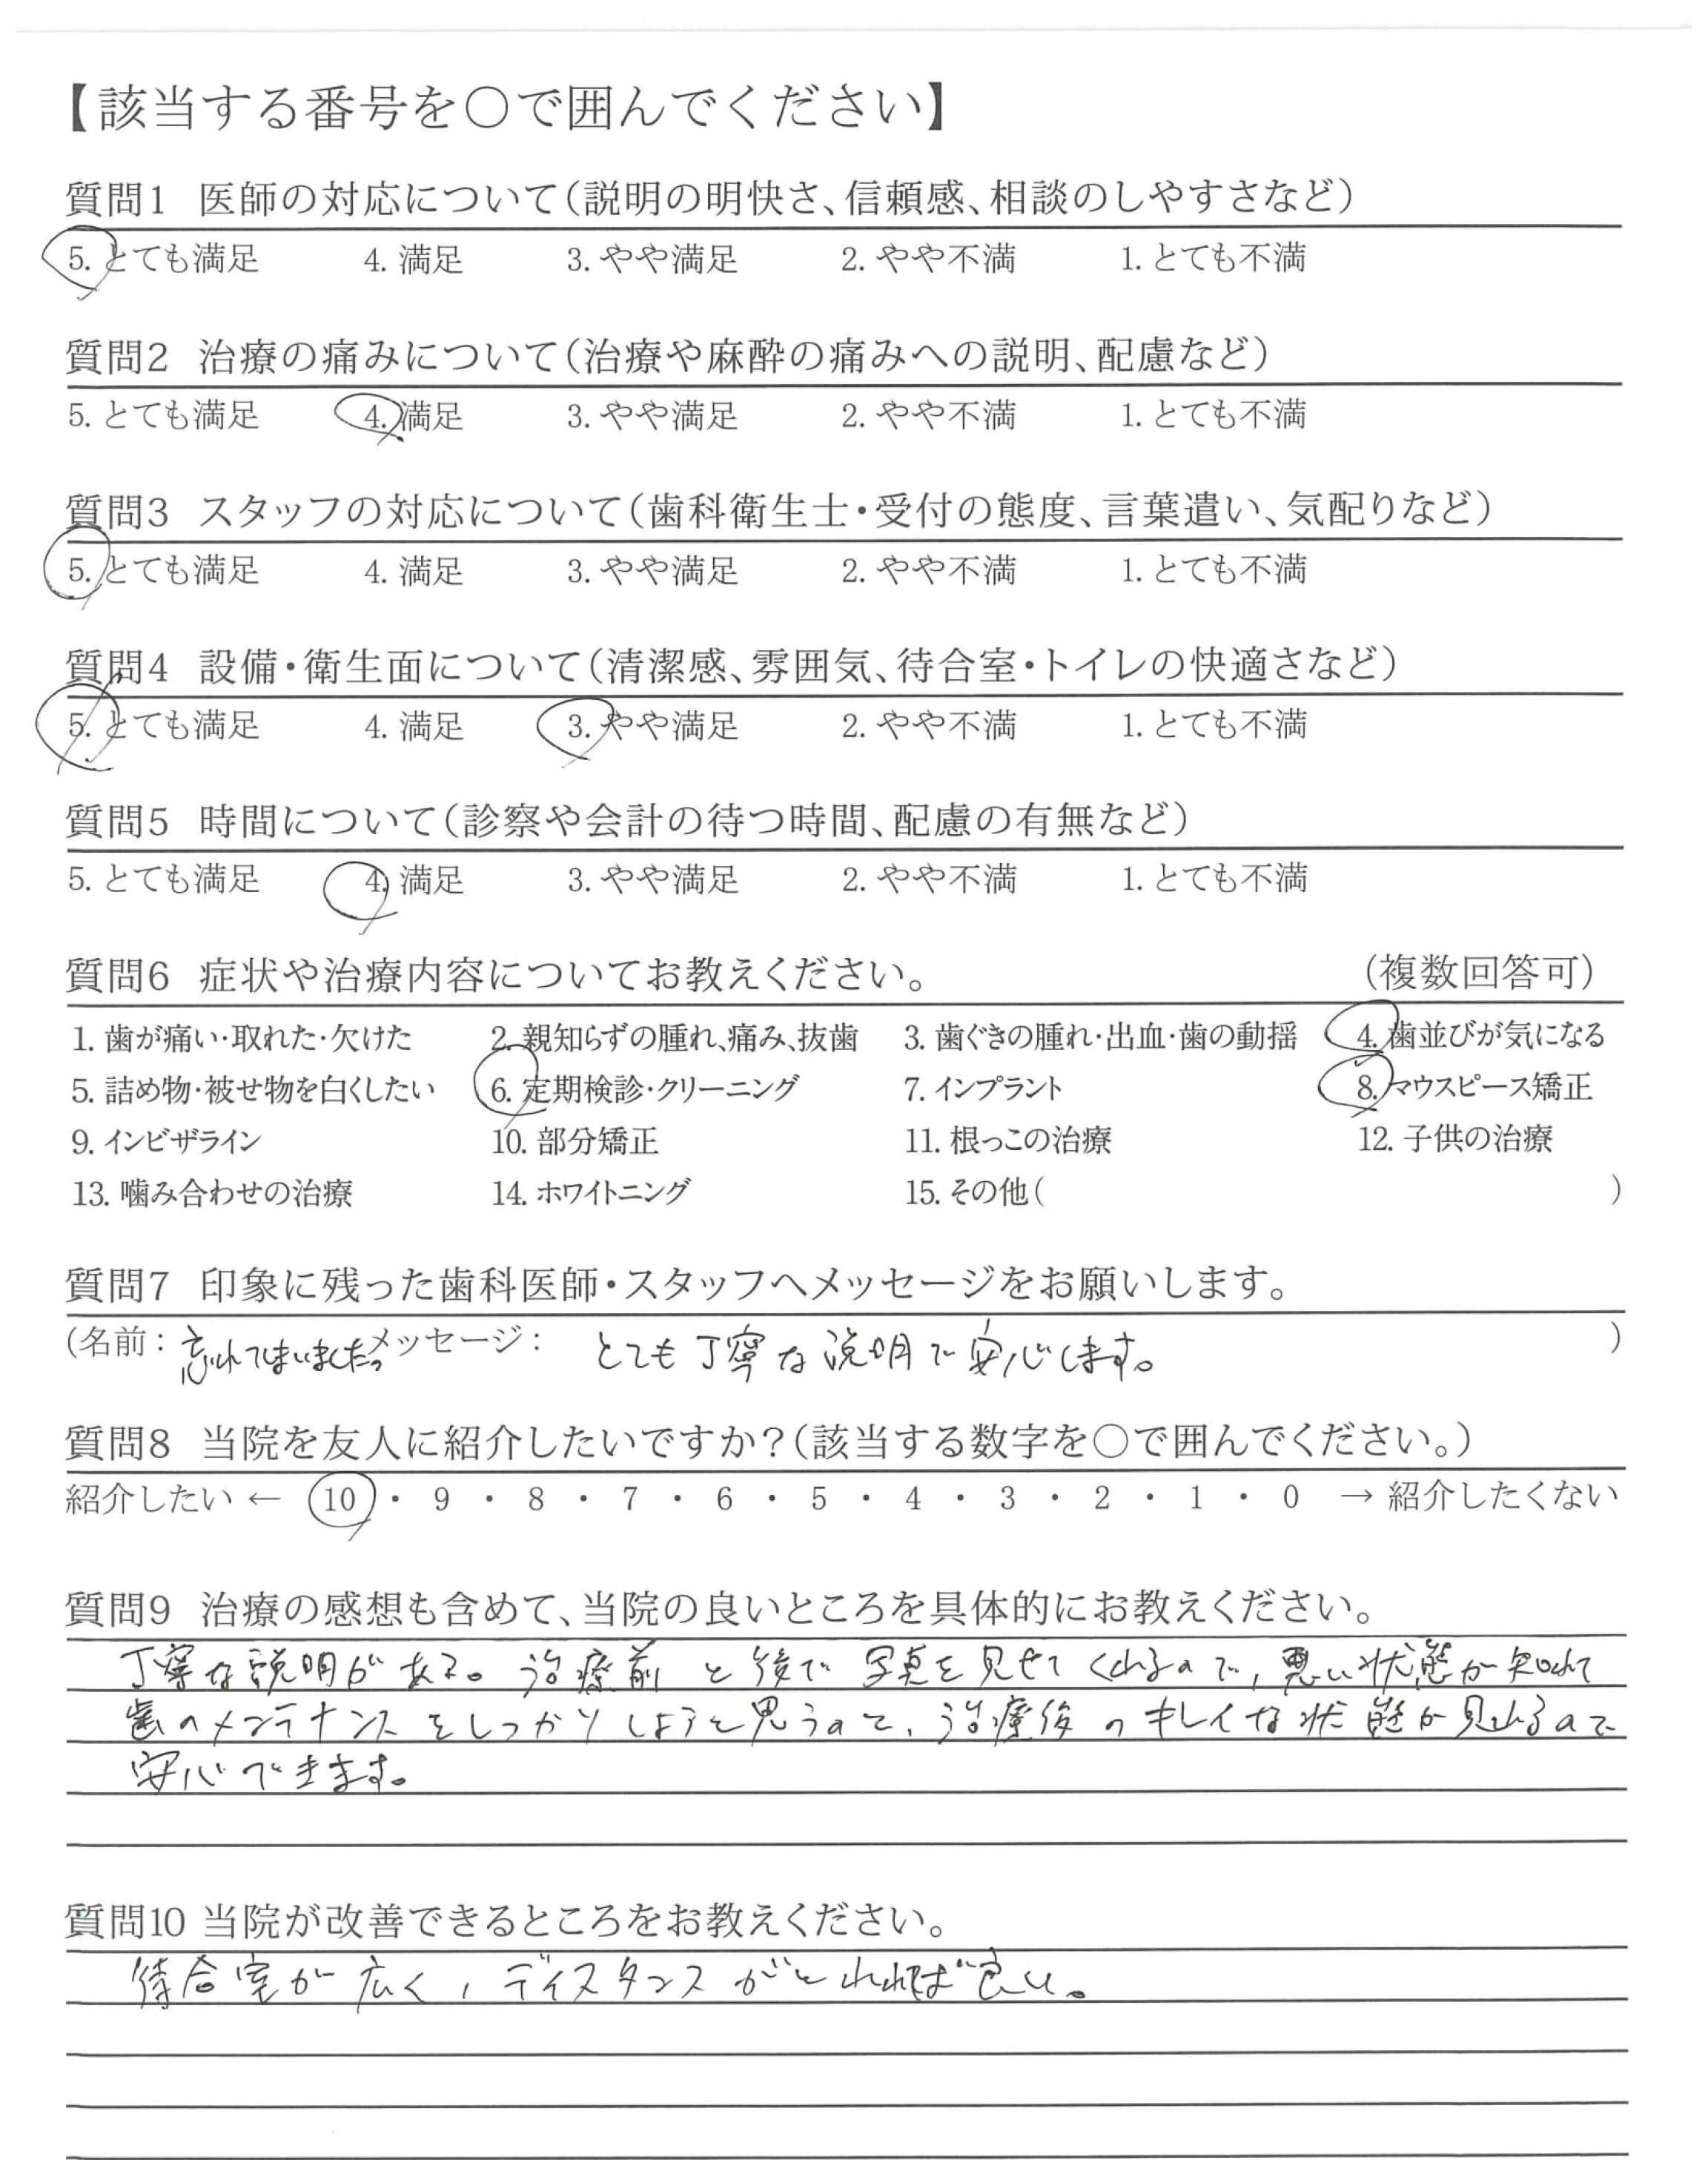 【該当する番号を○で囲んでください】
質問1 医師の対応について(説明の明快さ、信頼感、相談のしやすさなど)
5. とても満足 4. 満足 3. やや満足 2. やや不満 1. とても不満
質問2 治療の痛みについて(治療や麻酔の痛みへの説明、配慮など)
5. とても満足 4. 満足 3. やや満足 2. やや不満 1. とても不満
質問3 スタッフの対応について(歯科衛生士・受付の態度、言葉遣い、気配りなど)
5. とても満足 4. 満足 3. やや満足 2. やや不満 1. とても不満
質問4 設備・衛生面について(清潔感、雰囲気、待合室・トイレの快適さなど)
5. とても満足 4. 満足 3. やや満足 2. やや不満 1. とても不満
質問5 時間について(診察や会計の待つ時間、配慮の有無など)
5. とても満足 4. 満足 3. やや満足 2. やや不満 1. とても不満
質問6 症状や治療内容についてお教えください。 (複数回答可)
1. 歯が痛い・取れた・欠けた 2. 親知らずの腫れ、痛み、抜歯 3. 歯ぐきの腫れ・出血・歯の動揺 4. 歯並びが気になる
5. 詰め物・被せ物を白くしたい 6. 定期検診・クリーニング 7. インプラント 8. マウスピース矯正
9. インビザライン 10. 部分矯正 11. 根っこの治療 12. 子供の治療
13. 噛み合わせの治療 14. ホワイトニング 15. その他( )
質問7 印象に残った歯科医師・スタッフへメッセージをお願いします。
(名前: 忘れてしまいました。メッセージ: とても丁寧な説明で安心します。 )
質問8 当院を友人に紹介したいですか?(該当する数字を○で囲んでください。)
紹介したい ← 10 ・ 9 ・ 8 ・ 7 ・ 6 ・ 5 ・ 4 ・ 3 ・ 2 ・ 1 ・ 0 → 紹介したくない
質問9 治療の感想も含めて、当院の良いところを具体的にお教えください。
丁寧な説明がある。治療前と後で写真を見せてくれるので、悪い状態が知れて
歯のメンテナンスをしっかりしようと思うのと、治療後のキレイな状態が見れるので
安心できます。
質問10 当院が改善できるところをお教えください。
待合室が広く、ディスタンスがとれれば良い。